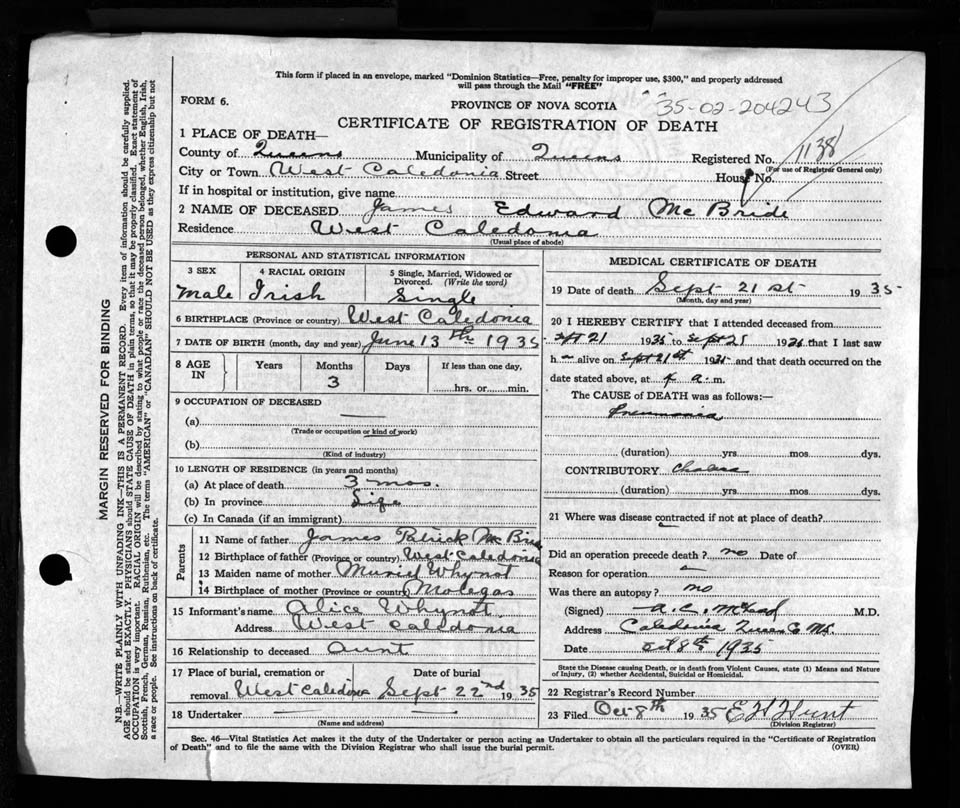 This form if placed in an envelope, marked "Dominion Statistics—Free, penalty for improper use, $300," and properly addressed
will pass through the Mail "FREE"
FORM 6.
PROVINCE OF NOVA SCOTIA
35-02-204243
CERTIFICATE OF REGISTRATION OF DEATH
1 PLACE OF DEATH—
County of Queens Municipality of Queens Registered No. 1138
(For use of Registrar General only)
City or Town West Caledonia Street House No.
If in hospital or institution, give name
2 NAME OF DECEASED James Edward McBride
Residence West Caledonia
(Usual place of abode)
PERSONAL AND STATISTICAL INFORMATION
3 SEX 4 RACIAL ORIGIN 5 Single, Married, Widowed or
Divorced. (Write the word)
Male Irish Single
6 BIRTHPLACE (Province or country) West Caledonia
7 DATE OF BIRTH (month, day and year) June 13th 1935
8 AGE IN Years Months Days If less than one day,
3 hrs. or min.
9 OCCUPATION OF DECEASED
(a)
(Trade or occupation or kind of work)
(b)
(Kind of industry)
10 LENGTH OF RESIDENCE (in years and months)
(a) At place of death 3 mos.
(b) In province Life
(c) In Canada (if an immigrant)
Parents
11 Name of father James Patrick McBride
12 Birthplace of father (Province or country) West Caledonia
13 Maiden name of mother Muriel Whynot
14 Birthplace of mother (Province or country) Molegas
15 Informant's name Alice Whynot
Address West Caledonia
16 Relationship to deceased Aunt
17 Place of burial, cremation or Date of burial
removal West Caledonia Sept 22nd 1935
18 Undertaker
(Name and address)
MEDICAL CERTIFICATE OF DEATH
19 Date of death Sept 21st 1935
(Month, day and year)
20 I HEREBY CERTIFY that I attended deceased from
Sept 21 1935 to Sept 21 1935 that I last saw
h alive on Sept 21st 1935 and that death occurred on the
date stated above, at 4 a.m.
The CAUSE of DEATH was as follows:—
Pneumonia
(duration) yrs. mos. dys.
CONTRIBUTORY
(duration) yrs. mos. dys.
21 Where was disease contracted if not at place of death?
Did an operation precede death? no Date of
Reason for operation
Was there an autopsy? no
(Signed) A. C. McLeod M.D.
Address Caledonia Queens Co N.S.
Date Oct 8th 1935
State the Disease causing Death, or in death from Violent Causes, state (1) Means and Nature
of Injury, (2) whether Accidental, Suicidal or Homicidal.
22 Registrar's Record Number
23 Filed Oct 8th 1935 E H Hunt
(Division Registrar)
Sec. 46—Vital Statistics Act makes it the duty of the Undertaker or person acting as Undertaker to obtain all the particulars required in the "Certificate of Registration
of Death" and to file the same with the Division Registrar who shall issue the burial permit. (OVER)
MARGIN RESERVED FOR BINDING
N.B.—WRITE PLAINLY WITH UNFADING INK—THIS IS A PERMANENT RECORD. Every item of information should be carefully supplied.
AGE should be stated EXACTLY. PHYSICIANS should STATE CAUSE OF DEATH in plain terms, so that it may be properly classified. Exact statement of
OCCUPATION is very important. RACIAL ORIGIN will be described by stating to what people or race the deceased person belonged, whether English, Irish,
Scottish, French, German, Russian, Ruthenian, etc. The terms "AMERICAN" or "CANADIAN" SHOULD NOT BE USED as they express citizenship but not
a race or people. See instructions on back of certificate.